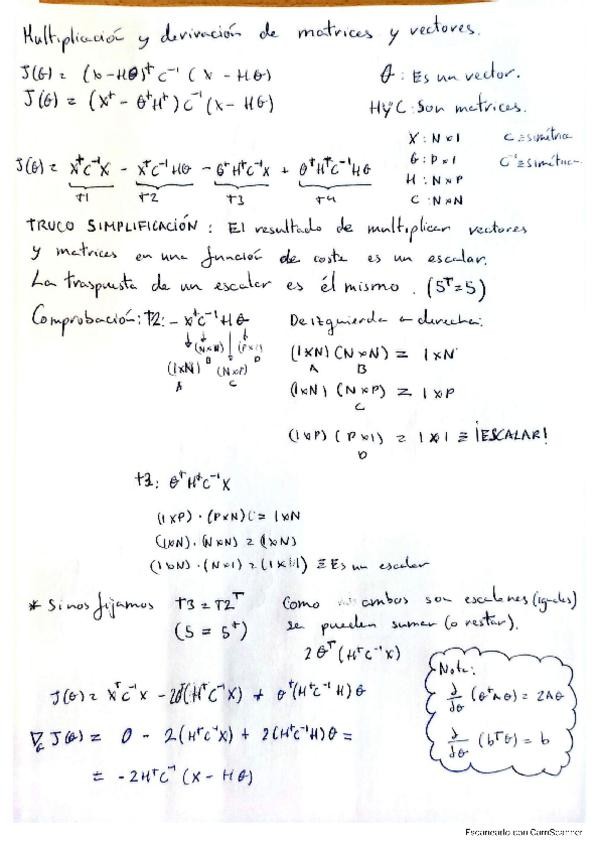 Multiplicación y derivación de matrices y vectores.
J(θ) = (x-Hθ)ᵀ C⁻¹ (x - Hθ)
θ: Es un vector.
J(θ) = (xᵀ - θᵀHᵀ) C⁻¹ (x - Hθ)
H y C: Son matrices.
X: N×1
C ≡ simétrica
θ: P×1
C⁻¹ ≡ simétrica
H: N×P
C: N×N
J(θ) = xᵀC⁻¹x - xᵀC⁻¹Hθ - θᵀHᵀC⁻¹x + θᵀHᵀC⁻¹Hθ
T1 T2 T3 T4
TRUCO SIMPLIFICACIÓN: El resultado de multiplicar vectores
y matrices en una función de coste es un escalar.
La traspuesta de un escalar es él mismo. (5ᵀ=5)
Comprobación: T2: - xᵀC⁻¹Hθ
(N×N) (P×1)
B D
(1×N) (N×P)
A C
De izquierda a derecha:
(1×N) (N×N) = 1×N
A B
(1×N) (N×P) = 1×P
C
(1×P) (P×1) = 1×1 ≡ ¡ESCALAR!
D
T3: θᵀHᵀC⁻¹X
(1×P) · (P×N) = 1×N
(1×N) · (N×N) = (1×N)
(1×N) · (N×1) = (1×1) ≡ Es un escalar
* Si nos fijamos T3 = T2ᵀ
(5 = 5ᵀ)
Como ambos son escalares (iguales)
se pueden sumar (o restar).
2θᵀ(HᵀC⁻¹X)
J(θ) = XᵀC⁻¹X - 2θᵀ(HᵀC⁻¹X) + θᵀ(HᵀC⁻¹H)θ
∇θ J(θ) = 0 - 2(HᵀC⁻¹X) + 2(HᵀC⁻¹H)θ =
= -2HᵀC⁻¹ (X - Hθ)
Nota:
∂/∂θ (θᵀAθ) = 2Aθ
∂/∂θ (bᵀθ) = b
Escaneado con CamScanner